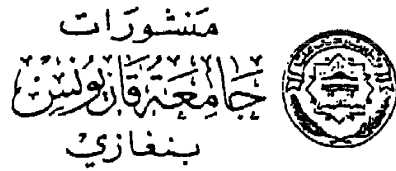 منشورات
جامعة قاريونس
بنغازي